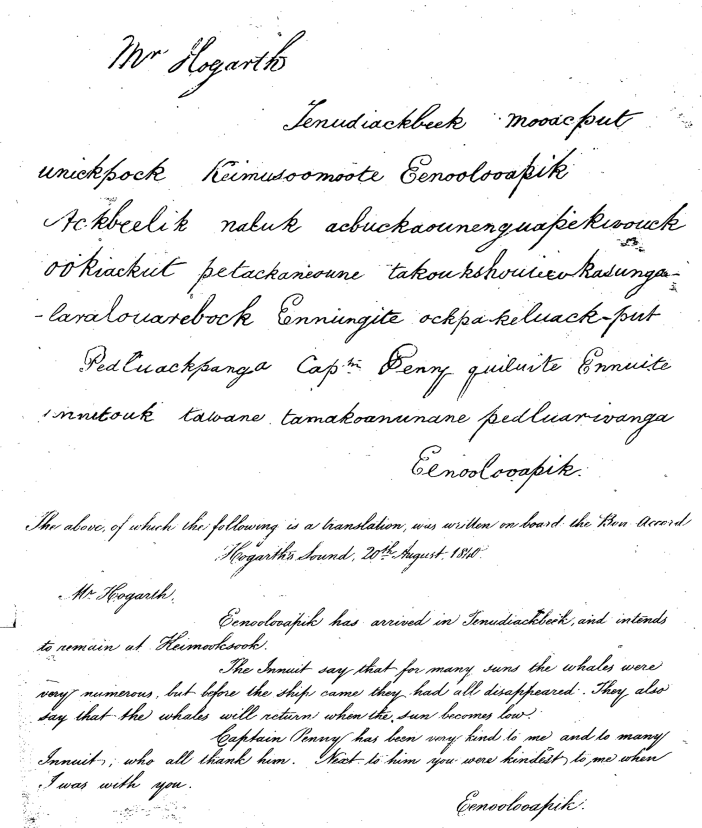 Mr Hogarth
Tenudiackbeek mooacput
unickpock Keimusoomoote Eenoolooapik
Ackbeelik naluk acbuckaounenguapekivouck
ookiackut petackaneoune takoukshouiew kasunga-
-laralouarebock Ennungite ockpakeluack-put
Pedluackpanga Captn Penny quiluite Ennuite
innutouk tawane tamakoanunane pedluarivanga
Eenoolooapik.
The above, of which the following is a translation, was written on board the Bon Accord
Hogarth's Sound, 20th August, 1840.
Mr Hogarth,
Eenoolooapik has arrived in Tenudiackbeek, and intends
to remain at Keimooksook.
The Innuit say that for many suns the whales were
very numerous, but before the ship came they had all disappeared. They also
say that the whales will return when the sun becomes low.
Captain Penny has been very kind to me and to many
Innuit, who all thank him. Next to him you were kindest to me when
I was with you.
Eenoolooapik.